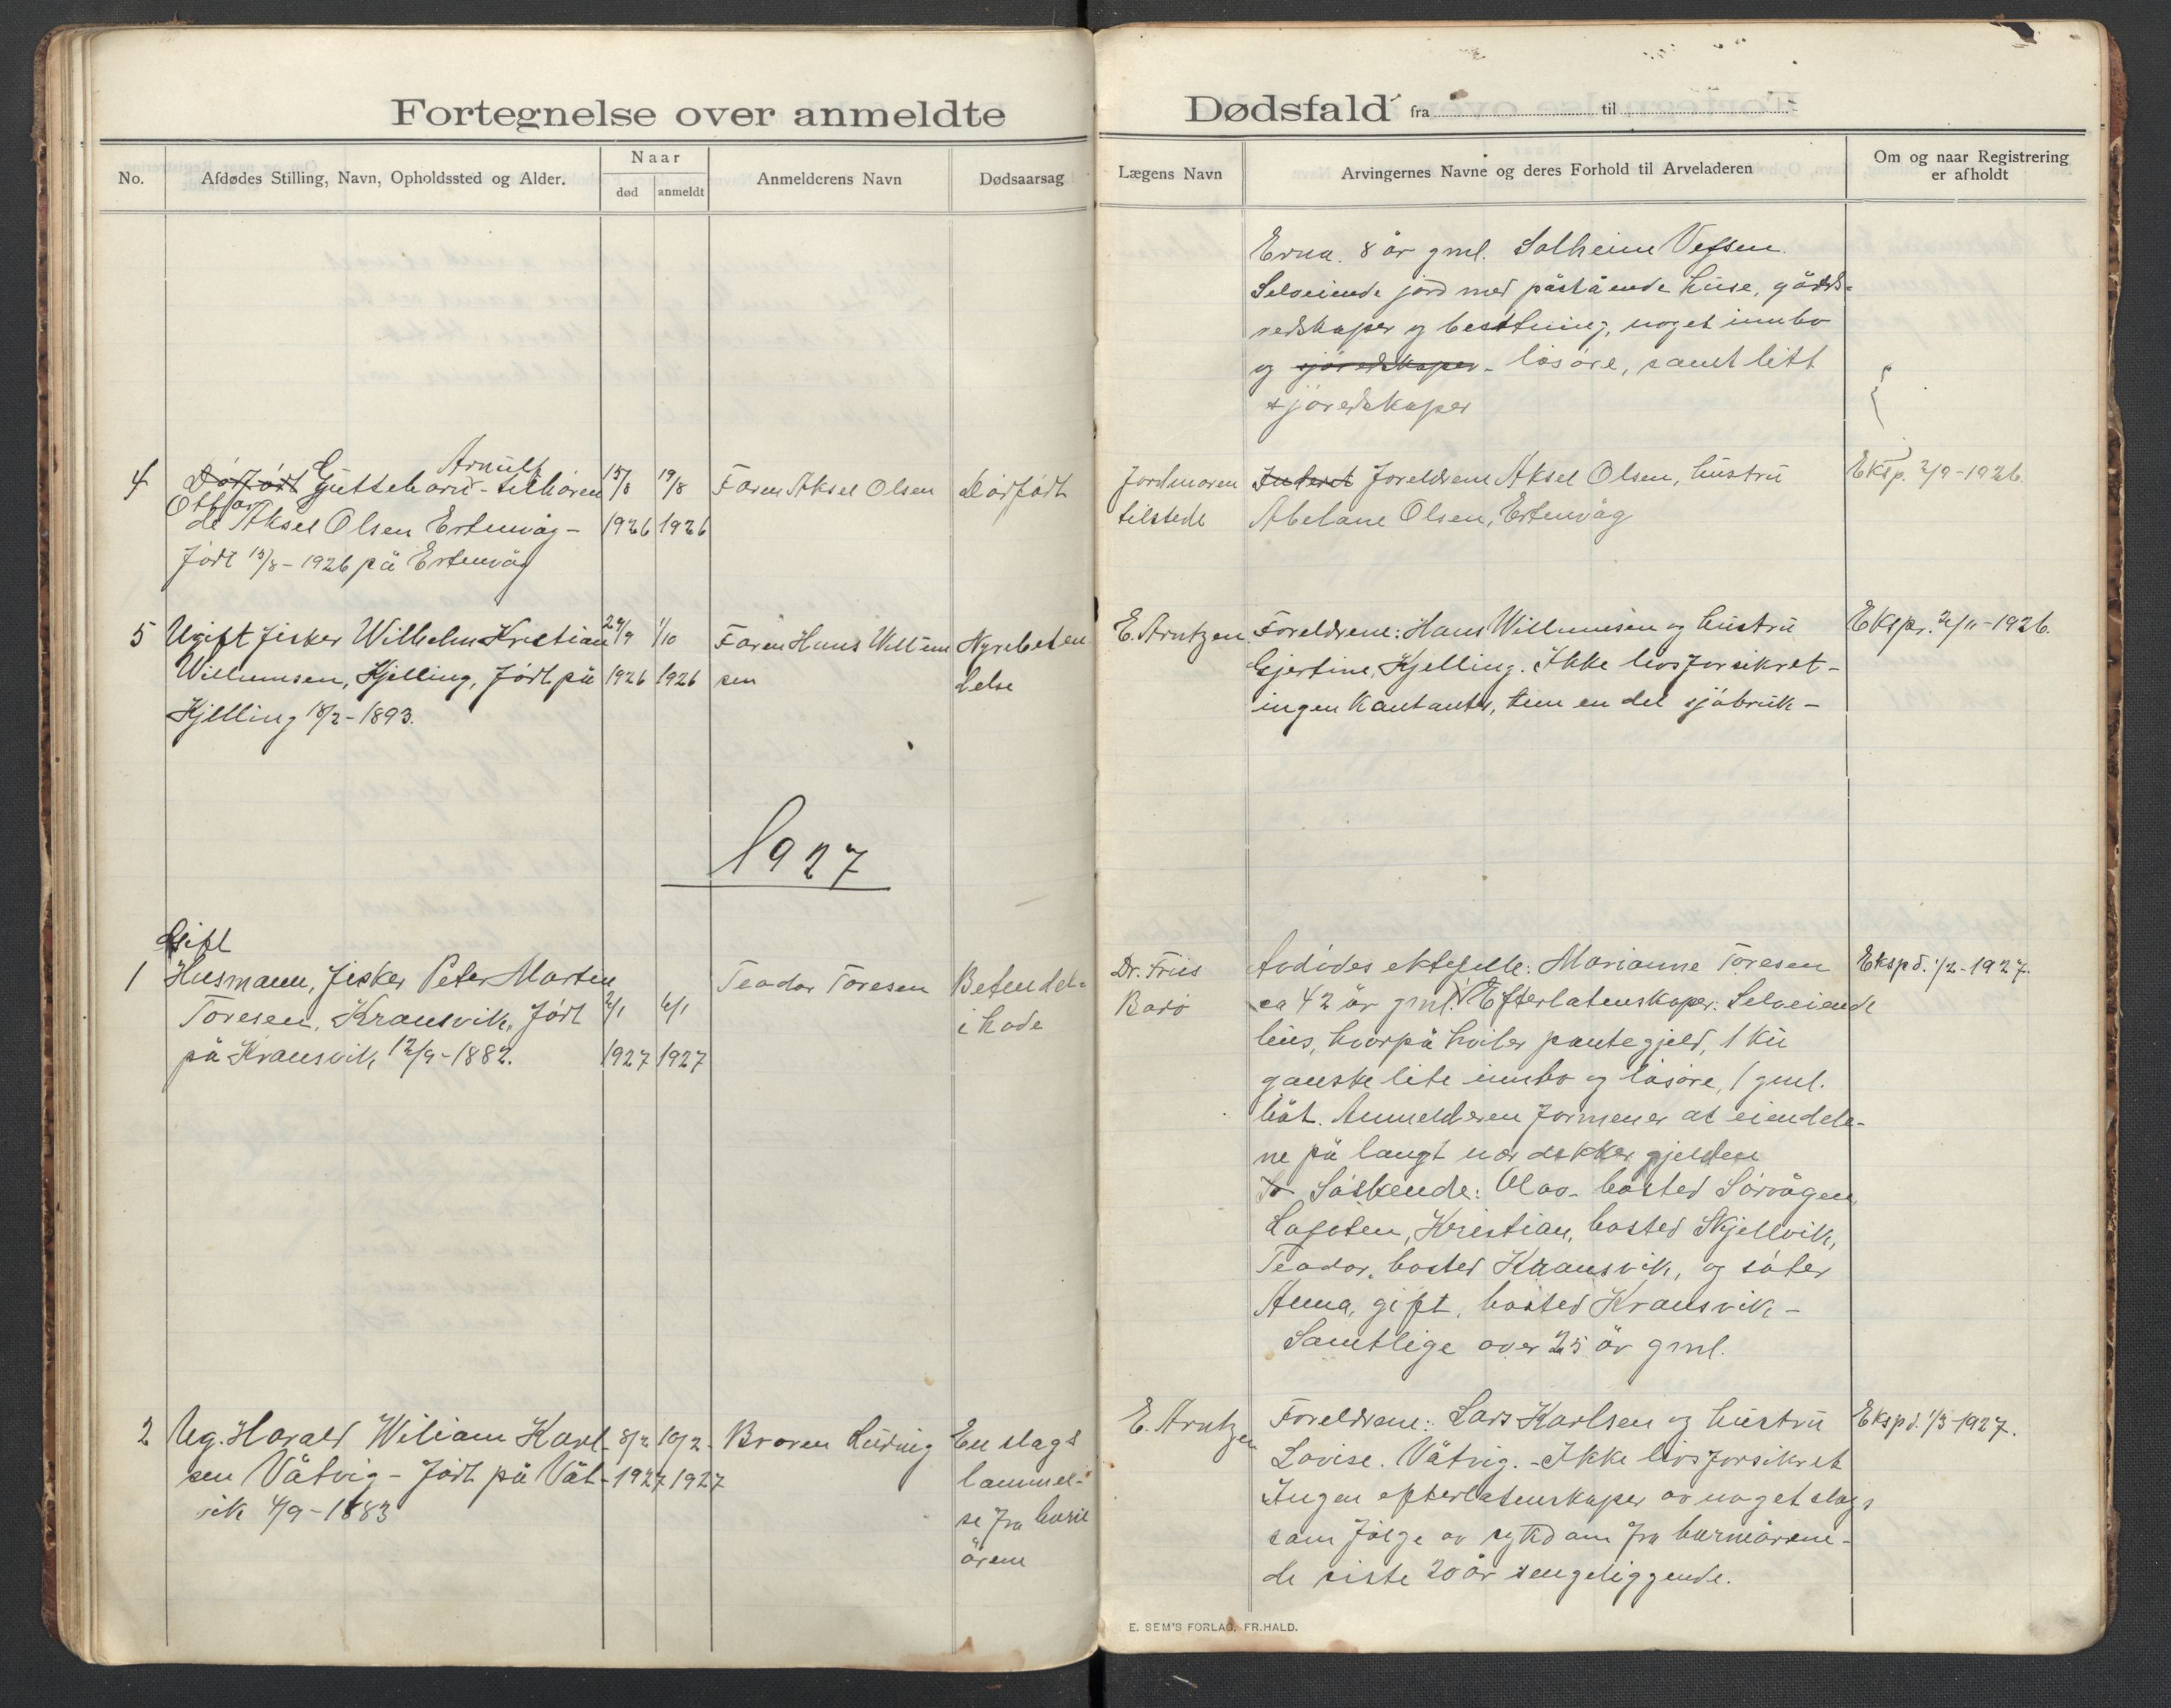 Fortegnelse over anmeldte
Dødsfald fra til
No.
Afdødes Stilling, Navn, Opholdssted og Alder.
Naar
død
anmeldt
Anmelderens Navn
Dødsaarsag
Lægens Navn
Arvingernes Navne og deres Forhold til Arveladeren
Om og naar Registrering
er afholdt
Erna. 8 år gml. Solheim Vefsen.
Selveiende jord med påstående huse, gårds-
redskaper og besetning, noget innbo
og sjøredskaper - løsøre, samt litt
sjøredskaper
4
Arnulf
Dødfødt Guttebarn - tilhören
Ottar
de Aksel Olsen Ertenvåg -
født 15/8 - 1926 på Ertenvåg
15/8
1926
19/8
1926
Faren Aksel Olsen
Dødfødt
Jordmoren
tilstede
Inderet Foreldrene Aksel Olsen, hustru
Abelone Olsen, Ertenvåg
Eksp. 2/9 - 1926.
5
Ugift fisker Wilhelm Kristian
Willumsen, Kjelling, født på
Kjelling 18/2 - 1893.
29/9
1926
1/10
1926
Faren Hans Willum
sen
Nyrebeten
delse
E. Arntzen
Foreldrene: Hans Willumsen og hustru
Gjertine, Kjelling. Ikke livsforsikret -
ingen kontanter, kun en del sjøbruk -
Ekspr. 2/11 - 1926.
1927
1
Gift
Husmann, fisker Peter Morten
Toresen, Kransvik, født
på Kransvik 12/9 - 1882.
2/1
1927
6/1
1927
Teodor Toresen
Betendel-
i hode
Dr. Friis
Bodø
Avdødes ektefelle: Marianne Toresen
ca 42 år gml. Efterlatenskaper: Selveiende
hus, hvorpå hviler pantegjeld, 1 ku
ganske lite innbo og løsøre, 1 gml.
båt. Anmelderen formener at eiendele-
ne på langt nær dekker gjelden
Søskende: Olav - bosted Sørvågen
Lofoten, Kristian, bosted Skjellvik,
Teodor, bosted Kransvik, og søster
Anna, gift, bosted Kransvik -
Samtlige over 25 år gml.
Ekspd. 1/2 - 1927.
2
Ug. Harald Wiliam Karl-
sen Våtvig - født på Våt-
vik 4/9 - 1883
8/2
1927
10/2
1927
Broren Ludvig
En slags
lammel-
se fra barne
årene
E. Arntzen
Foreldrene: Lars Karlsen og hustru
Lovise. Våtvig. - Ikke livsforsikret
Ingen efterlatenskaper av noget slags
som følge av sykdom fra barneårene -
de siste 20 år sengeliggende.
Ekspd. 1/3 - 1927.
E. SEM'S FORLAG, FR.HALD.